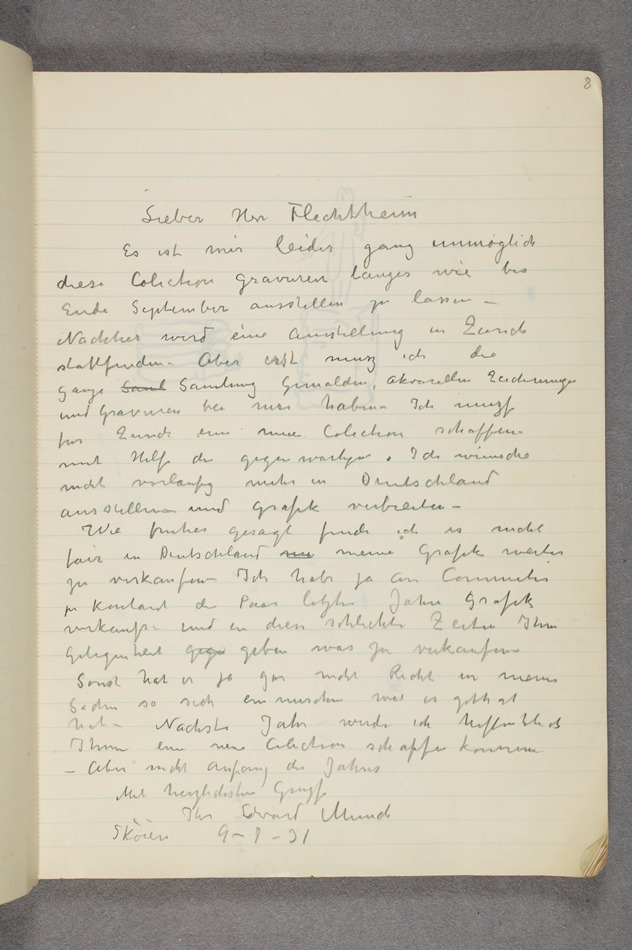 8
Lieber Herr Flechtheim
Es ist mir leider ganz unmöglich
diese Colection gravuren länger wie bis
Ende September ausstellen zu lassen –
Nachher wird eine Ausstellung in Zürich
stattfinden – Aber erst muss ich die
ganze Saml Samlung Gemälden, Akvarellen Zeichnungen
und Gravuren bei mir haben – Ich muss
für Zürich eine neue Colection schaffen –
mit Hilfe der gegenwärtigen. Ich wünsche
nicht vorläufig mehr in Deutschland
ausstellen und Grafik verbreiten –
Wie früher gesagt finde ich es nicht
fair in Deutschland meine Grafik weiter
zu verkaufen – Ich habe ja an Commeter
zu die Paar letzte Jahre Grafik
verkauft und in diese schlechte Zeiten Ihm
Gelegenheit gege geben was zu verkaufen
Sonst hat er ja gar nicht Recht in meine
Sachen so sich einmischen wie er gethat
hat – Nächste Jahr werde ich hoffentlich
Ihnen eine neue Colection schaffen können
– Aber nicht Anfang des Jahres
Mit herzlichsten Grusse
Ihr Edvard Munch
Sköien 9–31